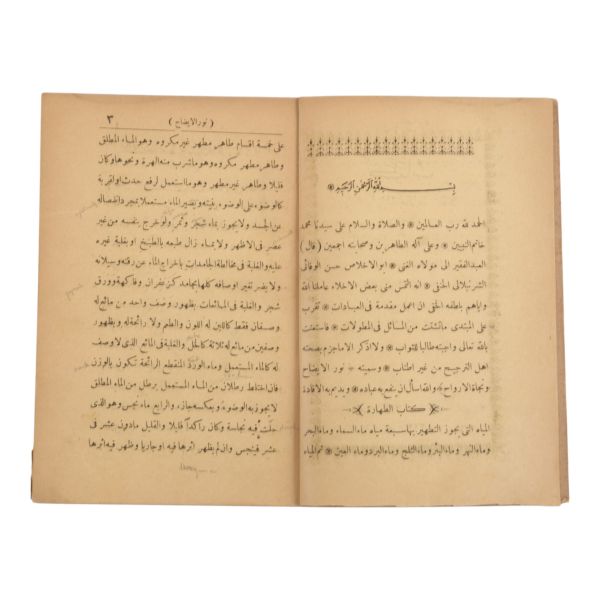 بسم الله الرحمن الرحيم
الحمد لله رب العالمين ❁ والصلاة والسلام على سيدنا محمد
خاتم النبيين ❁ وعلى آله الطاهرين وصحابته اجمعين ( قال )
العبد الفقير الى مولاه الغنى ❁ ابو الاخلاص حسن الوفائى
الشرنبلالى الحنفى ❁ انه التمس منى بعض الاخلاء عاملنا الله
واياهم بلطفه الخفى ❁ ان اعمل مقدمة فى العبادات ❁ تقرب
على المبتدى ماتشتت من المسائل فى المطولات ❁ فاستعنت
بالله تعالى واجبته طالبا للثواب ❁ ولا اذكر الا ماجزم بصحته
اهل الترجيح من غير اطناب ❁ وسميته ❁ نور الايضاح
ونجاة الارواح ❁ والله اسأل ان ينفع به عباده ❁ ويديم به الافادة
كتاب الطهارة
المياه التى يجوز التطهير بها سبعة مياه ماء السماء وماء البحر
وماء النهر وماء البئر وماء الثلج وماء البرد وماء العين ❁ ثم المياه
( نور الايضاح ) ٣
على خمسة اقسام طاهر مطهر غير مكروه وهو الماء المطلق
وطاهر مطهر مكروه وهو ما شرب منه الهرة ونحوها وكان
قليلا وطاهر غير مطهر وهو ما استعمل لرفع حدث او لقربة
كالوضوء على الوضوء بنيته ويصير الماء مستعملا بمجرد انفصاله
عن الجسد ولا يجوز بماء شجر وثمر ولو خرج بنفسه من غير
عصر فى الاظهر ولا بماء زال طبعه بالطبخ او بغلبة غيره
عليه والغلبة فى مخالطة الجامدات باخراج الماء عن رقته وسيلانه
ولا يضر تغير اوصافه كلها بجامد كزعفران وفاكهة وورق
شجر والغلبة فى المائعات بظهور وصف واحد من مائع له
وصفان فقط كاللبن له اللون والطعم ولا رائحة له وبظهور
وصفين من مائع له ثلاثة كالخل والغلبة فى المائع الذى لا وصف
له كالماء المستعمل وماء الورد المنقطع الرائحة تكون بالوزن
فان اختلط رطلان من الماء المستعمل برطل من الماء المطلق
لا يجوز به الوضوء وبعكسه جاز والرابع ماء نجس وهو الذى
حلت فيه نجاسة وكان راكدا قليلا والقليل مادون عشر فى
عشر فينجس وان لم يظهر اثرها فيه او جاريا وظهر فيه اثرها